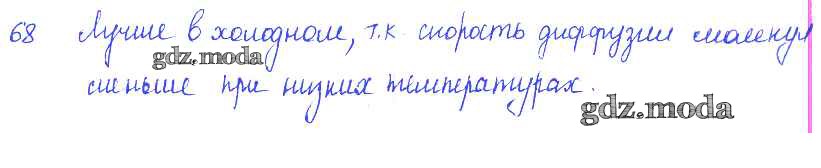 68 Лучше в холодном, т.к скорость диффузии молекул
gdz.moda
меньше при низких температурах.
gdz.moda